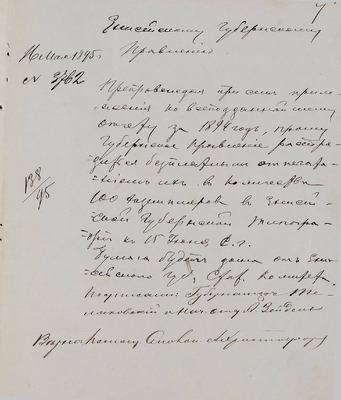 Енисейскому Губернскому
Правлению
16 Мая 1895 г.
N 3762
Препровождая при сем прило-
жения ко всеподданнейшему
отчету за 1894 год, прошу
Губернское Правление распо-
рядиться безплатным отпеча-
=танием их в количестве
100 экземпляров в Енисей-
=ской Губернской Типогра-
фии к 15 Июня с. г.
188/95
Бумага будет дана от Ени-
сейского Губ. Стат. комитета.
Подписали: Губернатор Те-
ляковский и